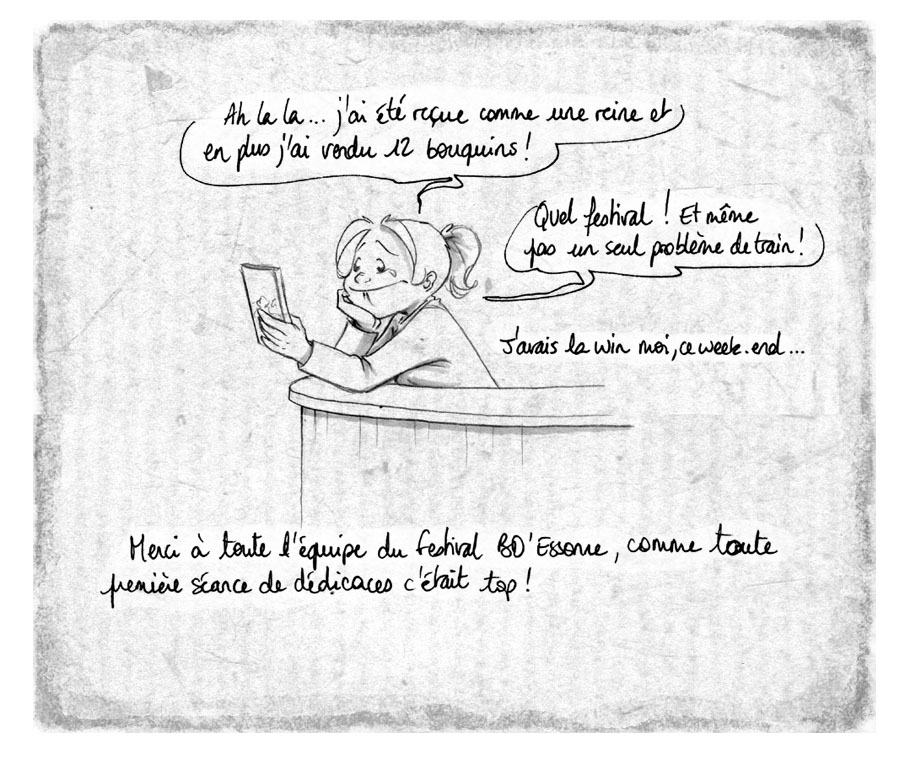 Ah la la... j'ai été reçue comme une reine et
en plus j'ai vendu 12 bouquins !
Quel festival ! Et même
pas un seul problème de train !
J'avais la win moi, ce week-end...
Merci à toute l'équipe du festival BD'Essonne, comme toute
première séance de dédicaces c'était top !